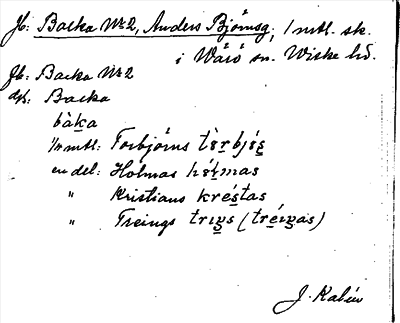 Jb: Backa Nr 2, Anders Björnsg, 1 mtl. sk.
i Wärö sn. Wiske hd.
Jb: Backa Nr 2
dpl: Backa
bàka
1/1 mtl: Torbjörns
en del: Holmas
" Kristians kréstas
" Treings trigs (tréigas)
J. Kalén